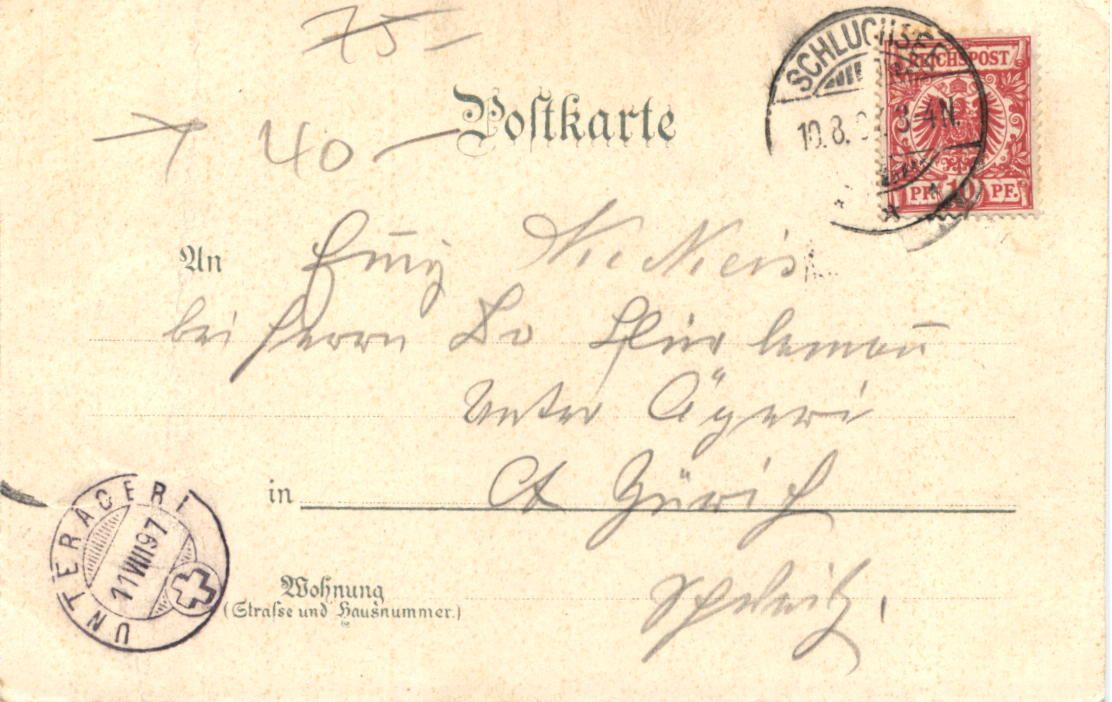 75 –
Postkarte
40 –
SCHLUCHSEE
10.8. 3-4N.
REICHSPOST
10 PF.
An
bei Herrn
Unter Ägeri
in Ct Zürich
Schweiz.
UNTERÄGERI
11 VIII 97
Wohnung
(Straße und Hausnummer.)